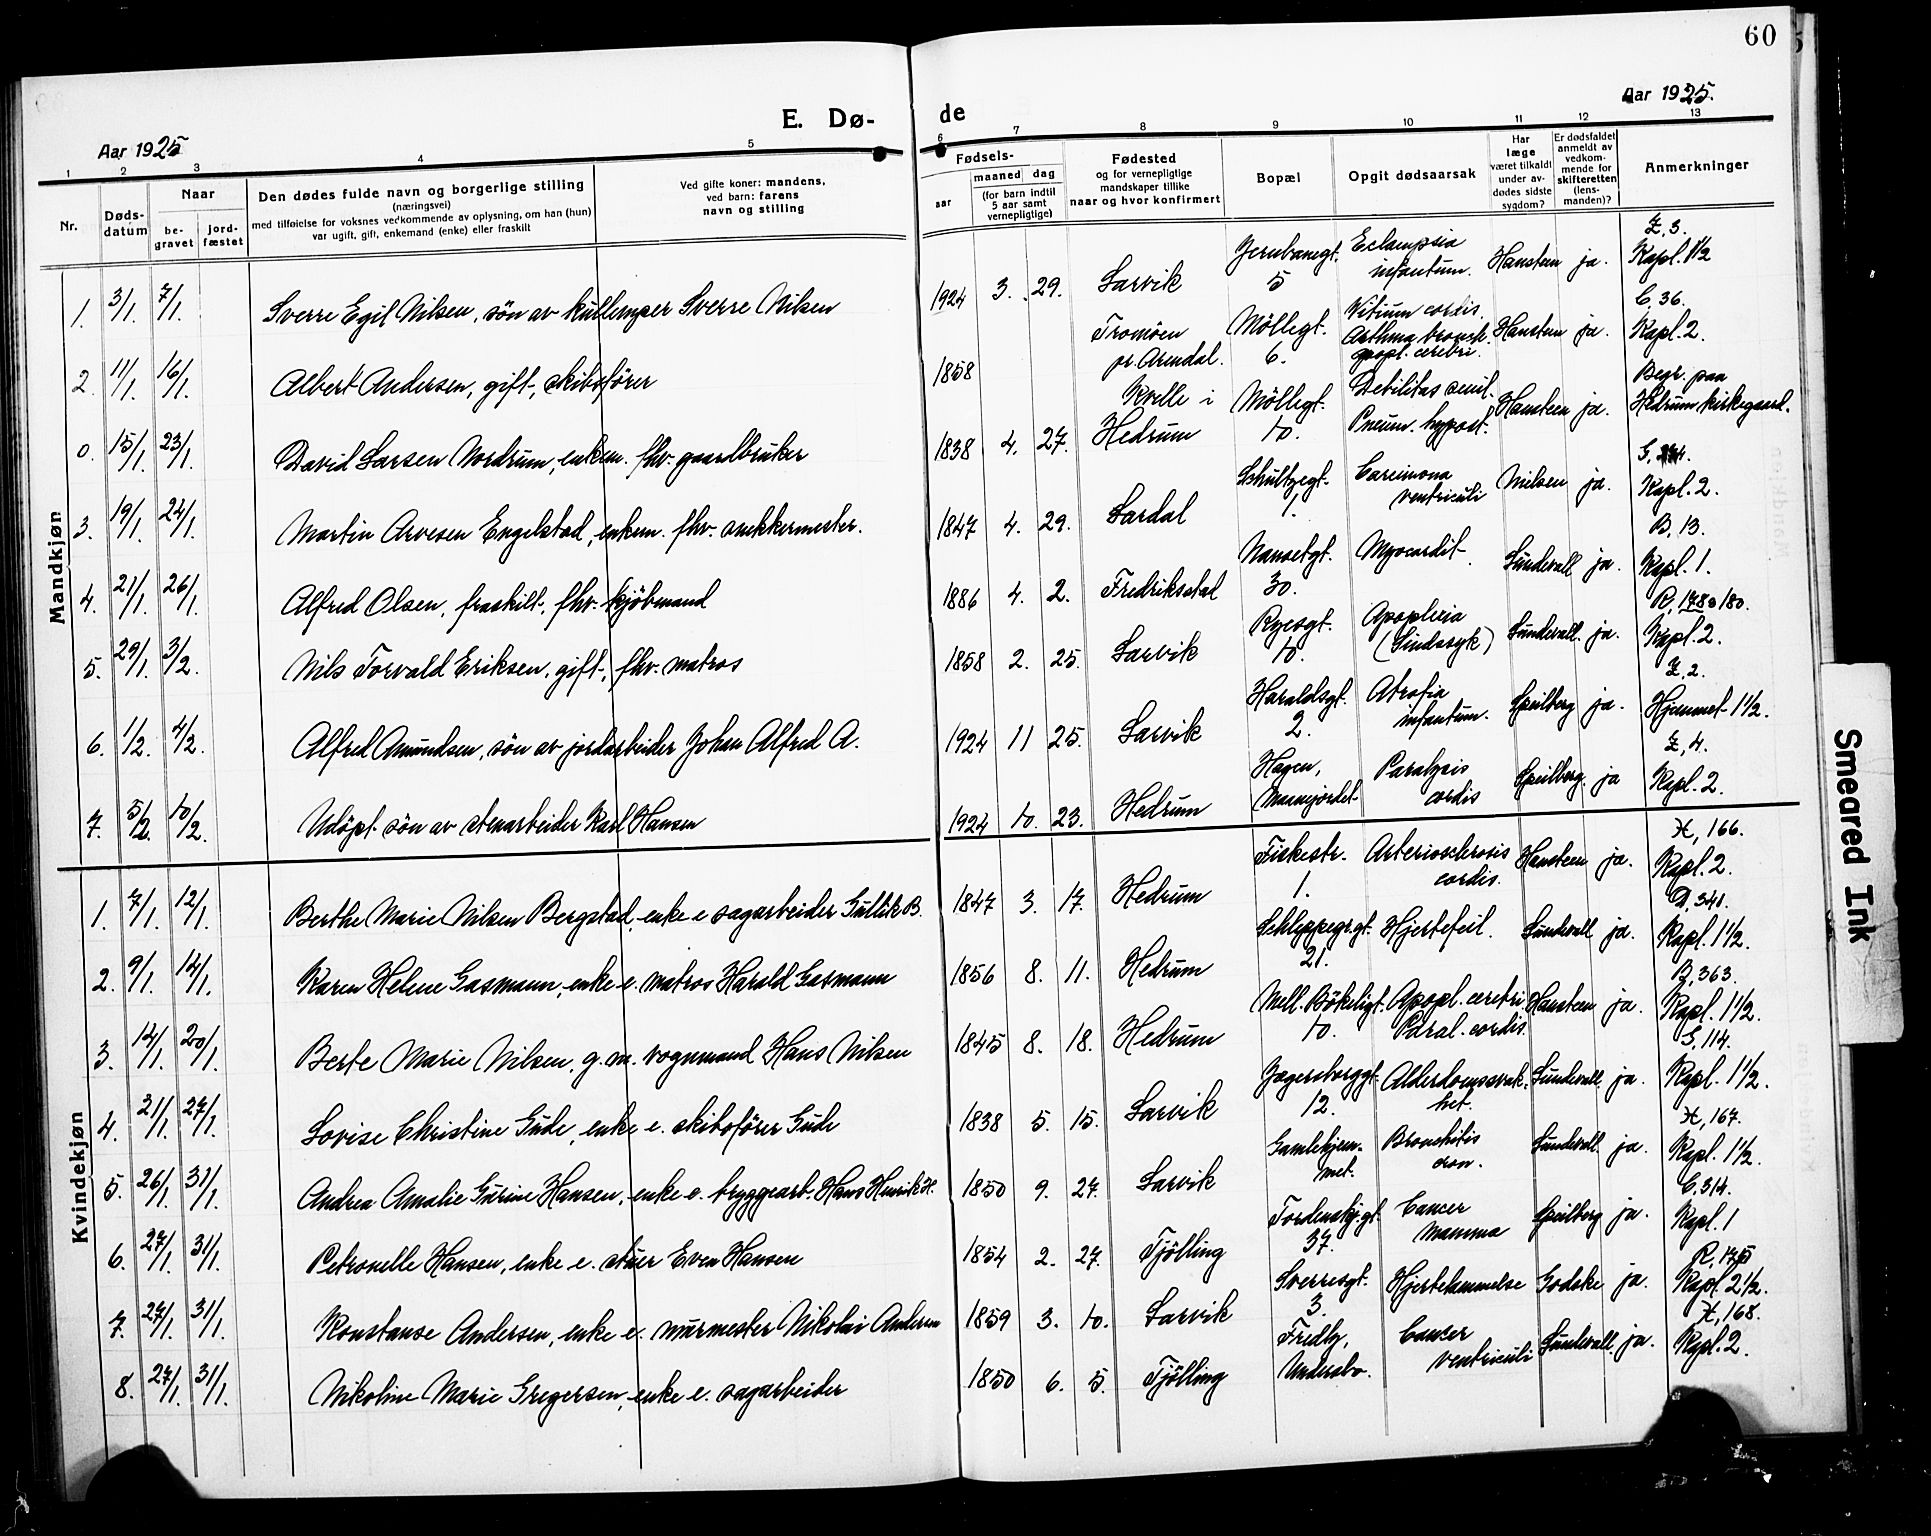 60
E. Dø- de
Aar 1925
Aar 1925.
1 2 3 4 5 6 7 8 9 10 11 12 13
Nr.
Døds-
datum
Naar
be-
gravet
jord-
fæstet
Den dødes fulde navn og borgerlige stilling
(næringsvei)
med tilføielse for voksnes vedkommende av oplysning, om han (hun)
var ugift, gift, enkemand (enke) eller fraskilt
Ved gifte koner: mandens,
ved barn: farens
navn og stilling
Fødsels-
aar
maaned dag
(for barn indtil
5 aar samt
vernepligtige)
Fødested
og for vernepligtige
mandskaper tillike
naar og hvor konfirmert
Bopæl
Opgit dødsaarsak
Har
læge
været tilkaldt
under av-
dødes sidste
sygdom?
Er dødsfaldet
anmeldt av
vedkom-
mende for
skifteretten
(lens-
manden)?
Anmerkninger
Mandkjøn
1. 3/1. 7/1. Sverre Egil Nilsen, søn av kullemper Sverre Nilsen 1924 3. 29. Larvik Jernbanegt. 5 Eclampsia infantum. Hansteen ja. Z. 3. Kapl. 1 1/2
2. 11/1. 16/1. Albert Andersen, gift, skibsfører 1858 Tromöen pr. Arendal. Möllegt. 6. Vitium cordis. Asthma bronch. apopl. cerebri. Hansteen ja. C. 36. Kapl. 2.
0. 15/1. 23/1. David Larsen Nordrum, enkem. fhv. gaardbruker 1838 4. 27. Kvelle i Hedrum Möllegt. 10. Debilitas senil. Pneum. hypost. Hansteen ja. Begr. paa Hedrum kirkegaard.
3. 19/1. 24/1. Martin Arvesen Engelstad, enkem. fhv. snekkermester. 1847 4. 29. Lardal Schultzegt. 1. Carcinoma ventriculi Nielsen ja. Kapl. 2.
4. 21/1. 26/1. Alfred Olsen, fraskilt, fhv. kjöbmand 1886 4. 2. Fredriksstad Nansetgt. 30. Myocardit Sundevall ja. B. 13. Kapl. 1.
5. 29/1. 3/2. Nils Torvald Eriksen, gift, fhv. matros 1858 2. 25. Larvik Ryesgt. 10. Apoplexia (Sindssyk) Sundevall ja. R, 178 o 180. Kapl. 2.
6. 1/2. 4/2. Alfred Amundsen, søn av jordarbeider Johan Alfred A. 1924 11 25. Larvik Haraldsgt. 2. Atrofia infantum. Speilberg ja. Z. 2. Hjemmet 1 1/2.
7. 5/2. 10/2. Udöpt søn av stenarbeider Karl Hansen 1924 10. 23. Hedrum Hagen, Paralysis cordis Speilberg. ja Z, 4. Kapl. 2.
Kvindekjøn
1. 7/1. 12/1. Berthe Marie Nilsen Bergstad, enke e sagarbeider Gullik B. 1847 3. 17. Hedrum Fiskestr. 1. Arteriosclerosis cordis. Hansteen ja. H, 166. Kapl. 2.
2. 9/1. 14/1. Karen Helene Gasmann, enke e. matros Harald Gasmann 1856 8. 11. Hedrum Schleppegr.gt. 21. Hjertefeil. Sundevall ja. D, 341. Kapl. 1 1/2.
3. 14/1. 20/1. Berte Marie Nilsen, g. m. vognmand Hans Nilsen 1845 8. 18. Hedrum Mell. Bökeligt. 10. Apopl. cerebri Paral. cordis. Hansteen ja. B, 363. Kapl. 1 1/2.
4. 21/1. 27/1. Lovise Christine Gude, enke e. skibsfører Gude 1838 5. 15. Larvik Jægersborggt. 12. Alderdomssvak-het. Sundevall ja. G, 114. Kapl. 1 1/2.
5. 26/1. 31/1. Andrea Amalie Gurine Hansen, enke e. bryggearb. Hans Henrik H. 1850 9. 27. Larvik Gamlehjem-met. Bronchitis cron. Sundevall ja. H, 167. Kapl. 1 1/2.
6. 27/1. 31/1. Petronelle Hansen, enke e. stuer Even Hansen 1854 2. 27. Tjölling Tordenskj.gt. 37. Cancer mamma Speilberg ja. C. 314. Kapl. 1
7. 27/1. 31/1. Konstanse Andersen, enke e. murmester Nikolai Andersen 1859 3. 10. Larvik Sverresgt. 3. Hjertelammelse Godske ja. R, 175 Kapl. 2 1/2.
8. 27/1. 31/1. Nikoline Marie Gregersen, enke e. sagarbeider 1850 6. 5. Tjölling Fredly, Undersbo. Cancer ventriculi Sundevall ja. H, 168. Kapl. 2.
Smeared Ink